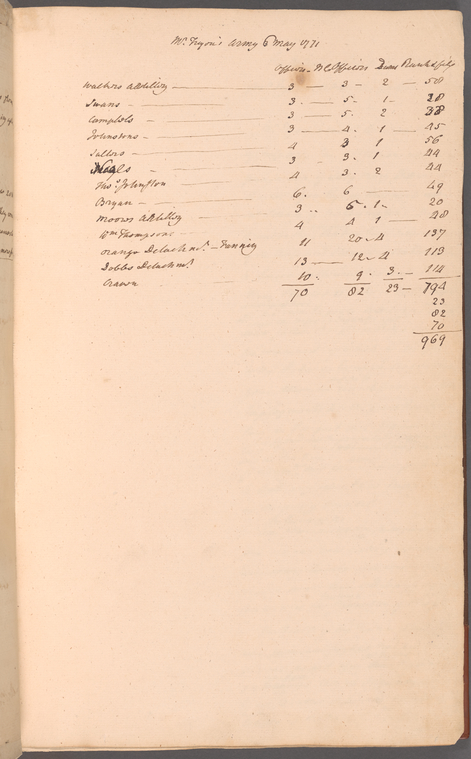 Mr. Tryon's Army 6 May 1771
Officers – NC Officers Drums Rank & file
Walkers Artillery — 3 — 3 – 2 — 58
Swans — 3 . — 5 . 1 — 28
Campbels — 3 — 5 . 2 38
Johnstons — 3 — 4 . 1 — 45
Salters — 4 3 1 56
Neals — 3 – 3 . 1 — 44
Thos. Johnston — 4 3 . 2 44
Bryan — 6 . 6 — 49
Moores Artillery — 3 .. 5 . 1 – 20
Wm Thompsons — 4 4 1 — 48
Orange Detachmt. – Fanning 11 20 – 4 137
Dobbs Detachmt. 13 — 12 – 4 113
Craven 10 – 9 . 3 — 114
70 82 23 — 794
23
82
70
969